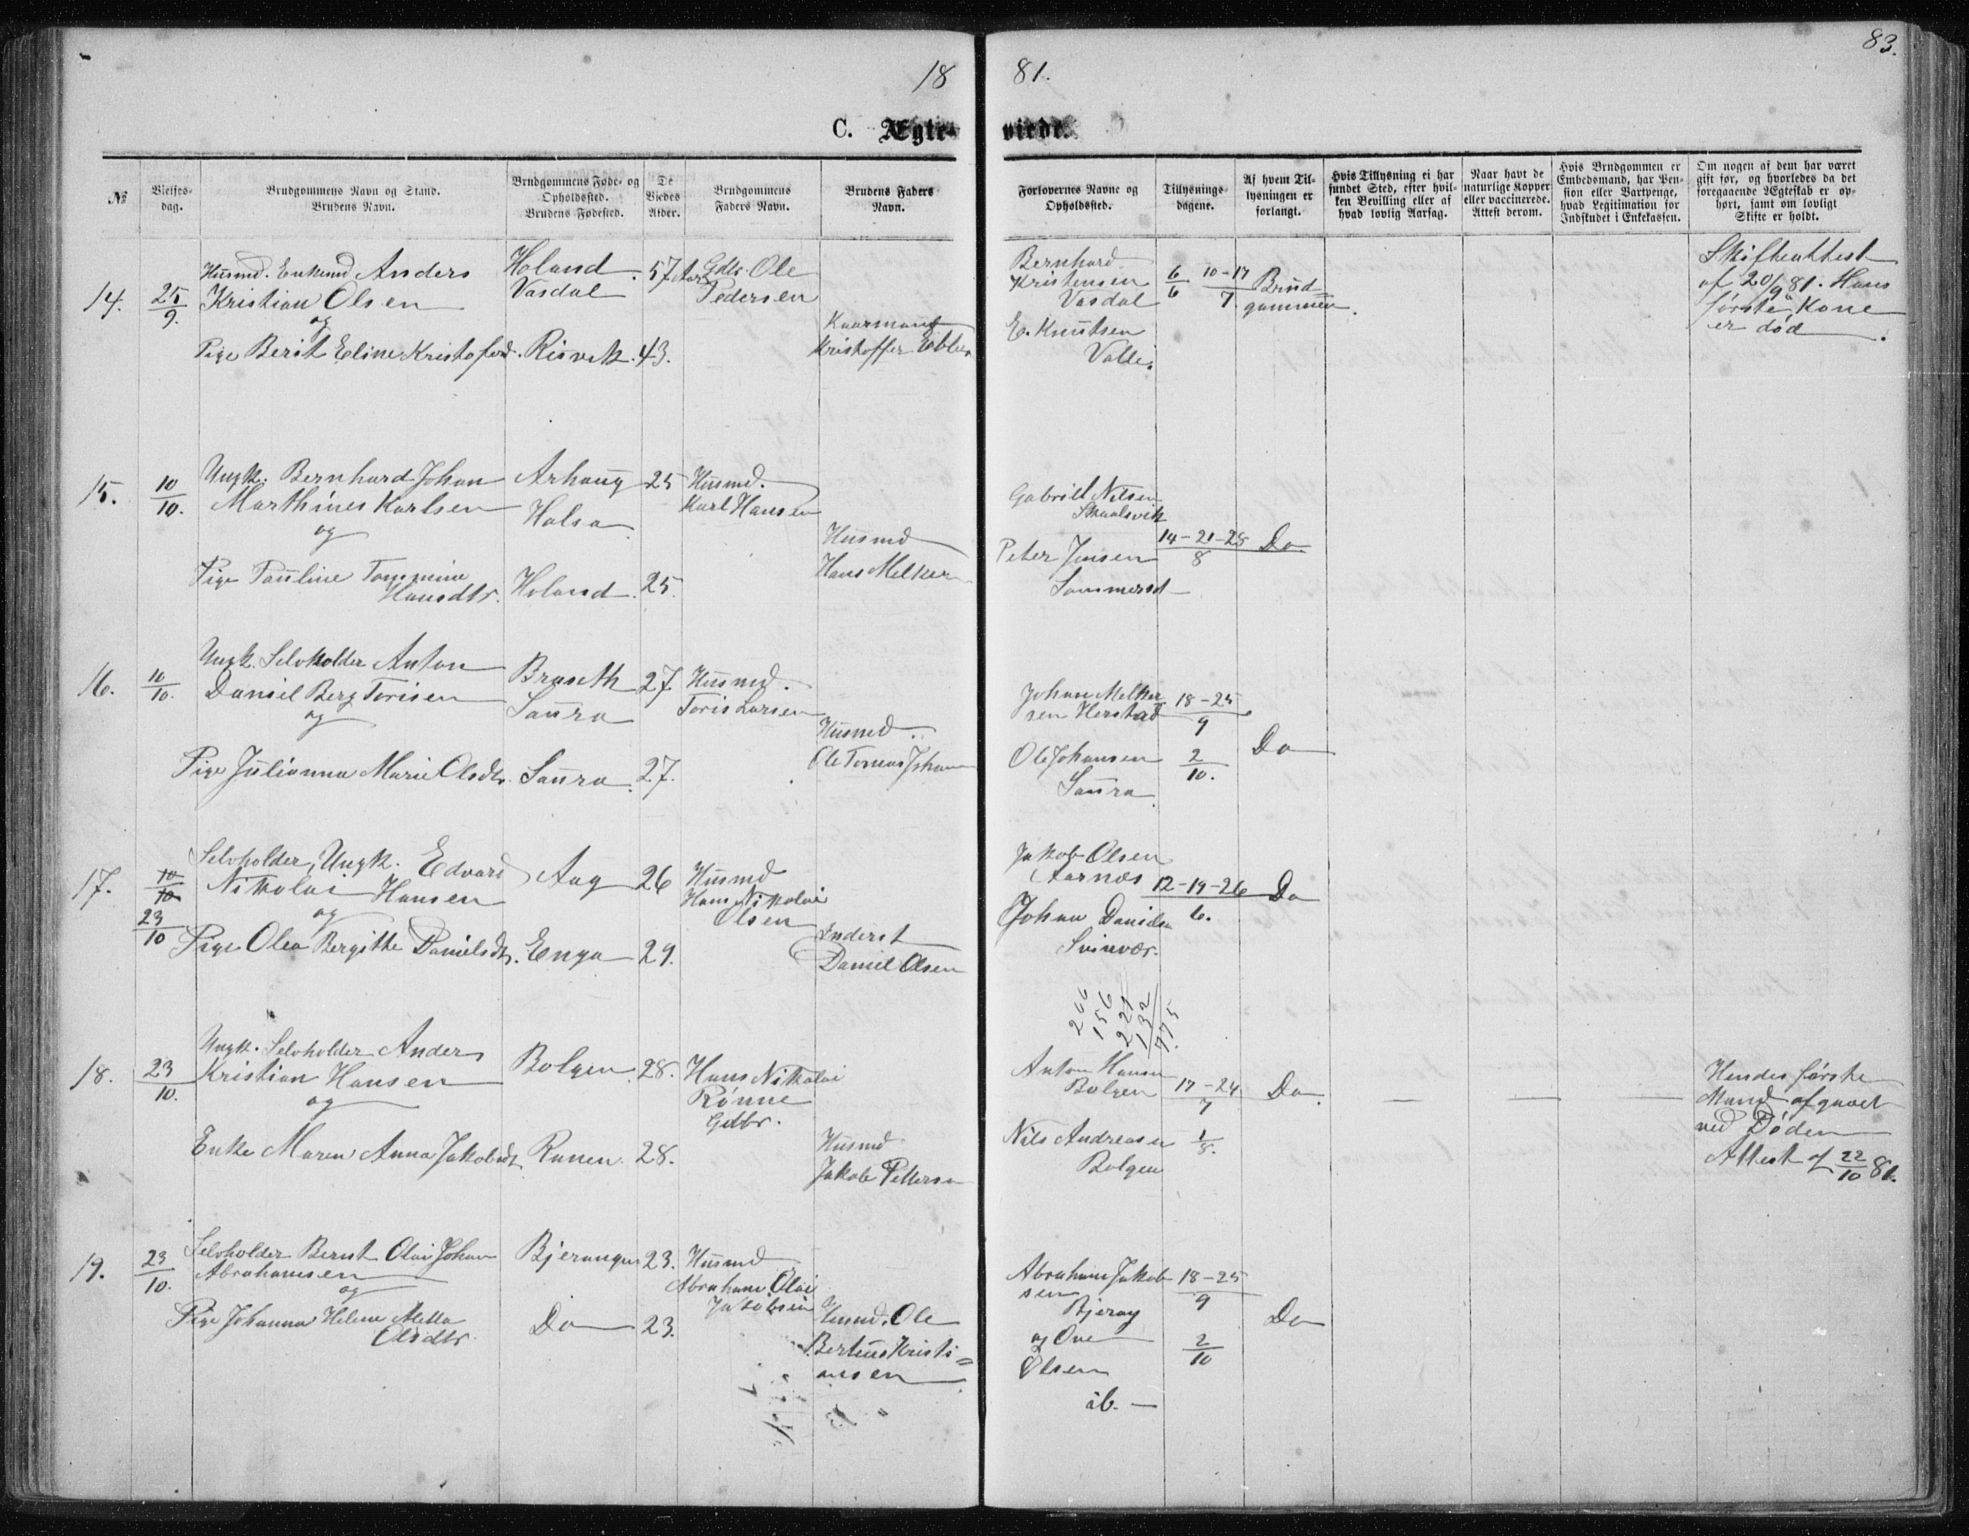 83.
18 81.
C. Ægte- viede.
№
Vielses-
dag.
Brudgommens Navn og Stand.
Brudens Navn.
Brudgommens Føde- og
Opholdssted.
Brudens Fødested.
De
Viedes
Alder.
Brudgommens
Faders Navn.
Brudens Faders
Navn.
Forlovernes Navne og
Opholdssted.
Tillysnings-
dagene.
Af hvem Til-
lysningen er
forlangt.
Hvis Tillysning ei har
fundet Sted, efter hvil-
ken Bevilling eller af
hvad lovlig Aarsag.
Naar havt de
naturlige Kopper
eller vaccinerede.
Attest derom.
Hvis Brudgommen er
Embedsmand, har Pen-
sion eller Vartpenge,
hvad Legitimation for
Indskudet i Enkekassen.
Om nogen af dem har været
gift før, og hvorledes da det
foregaaende Ægteskab er op-
hørt, samt om lovligt
Skifte er holdt.
14.
25/9.
Husmd. Enkemd Anders
Kristian Olsen
og
Pige Berit Eline Kristofersd.
Holand
Vasdal
Risvik
57
43.
Gdbr. Ole
Pedersen
Kaarmand
Kristoffer
Bernhard
Kristensen
Vasdal
E. Knutsen
Valle.
6/6
10-17/7
Brud
gommen.
Skifteattest
af 20/9 81. Hans
første Kone
er død.
15.
10/10.
Ungk. Bernhard Johan
Marthines Karlsen
og
Pige Pauline Tommine
Hansdtr.
Arhaug
Halsa
Holand
25
25.
Husmd.
Karl Hansen
Husmd
Hans Melker
Gabriel Nilsen
Skaalsvik
Peter Jensen
Sommersd
14-21-28/8
Do
16.
10/10.
Ungk. Selvholder Anton
Daniel Berg Torisen
og
Pige Julianna Marie Olsdtr.
Braseth
Saura
Saura
27
27.
Husmd.
Toris Larsen
Husmd.
Ole Tomas Johan
Johan Melker
sen Herstad
Ole Johansen
Saura
18-25/9
2/10.
Do
17.
10/10
23/10
Selvholder, Ungk. Edvard
Nikolai Hansen
og
Pige Olea Bergitte Danielsdtr.
Aag
Enga
26
29.
Husmd
Hans Nikolai
Olsen
Inderst
Daniel Olsen
Jakob Olsen
Aarnæs
Johan Daniels
Svinvær.
12-19-26/6.
Do
266
156
221
132
775
18.
23/10.
Ungk. Selvholder Anders
Kristian Hansen
og
Enke Maren Anna Jakobsdt
Bolgen
Runen
28.
28.
Hans Nikolai
Rønne
Gdbr.
Husmd
Jakob Pettersen
Anton Hansen
Bolgen
Nils Andreasen
Bolgen
17-24/7
1/8.
Do.
Hendes første
Mand afgaaet
ved Døden
Attest af 22/10 81.
19.
23/10.
Selvholder Bernt Olai Johan
Abrahamsen
og
Pige Johanna Helene Metta
Olsdtr.
Bjerangen
Do
23.
23.
Husmd
Abraham Olai
Jakobsen
Husmd. Ole
Berteus Kristi=
ansen
Abraham Jakob
sen
Bjerang
og Ove
Olsen
ib.
18-25/9
2/10
Do